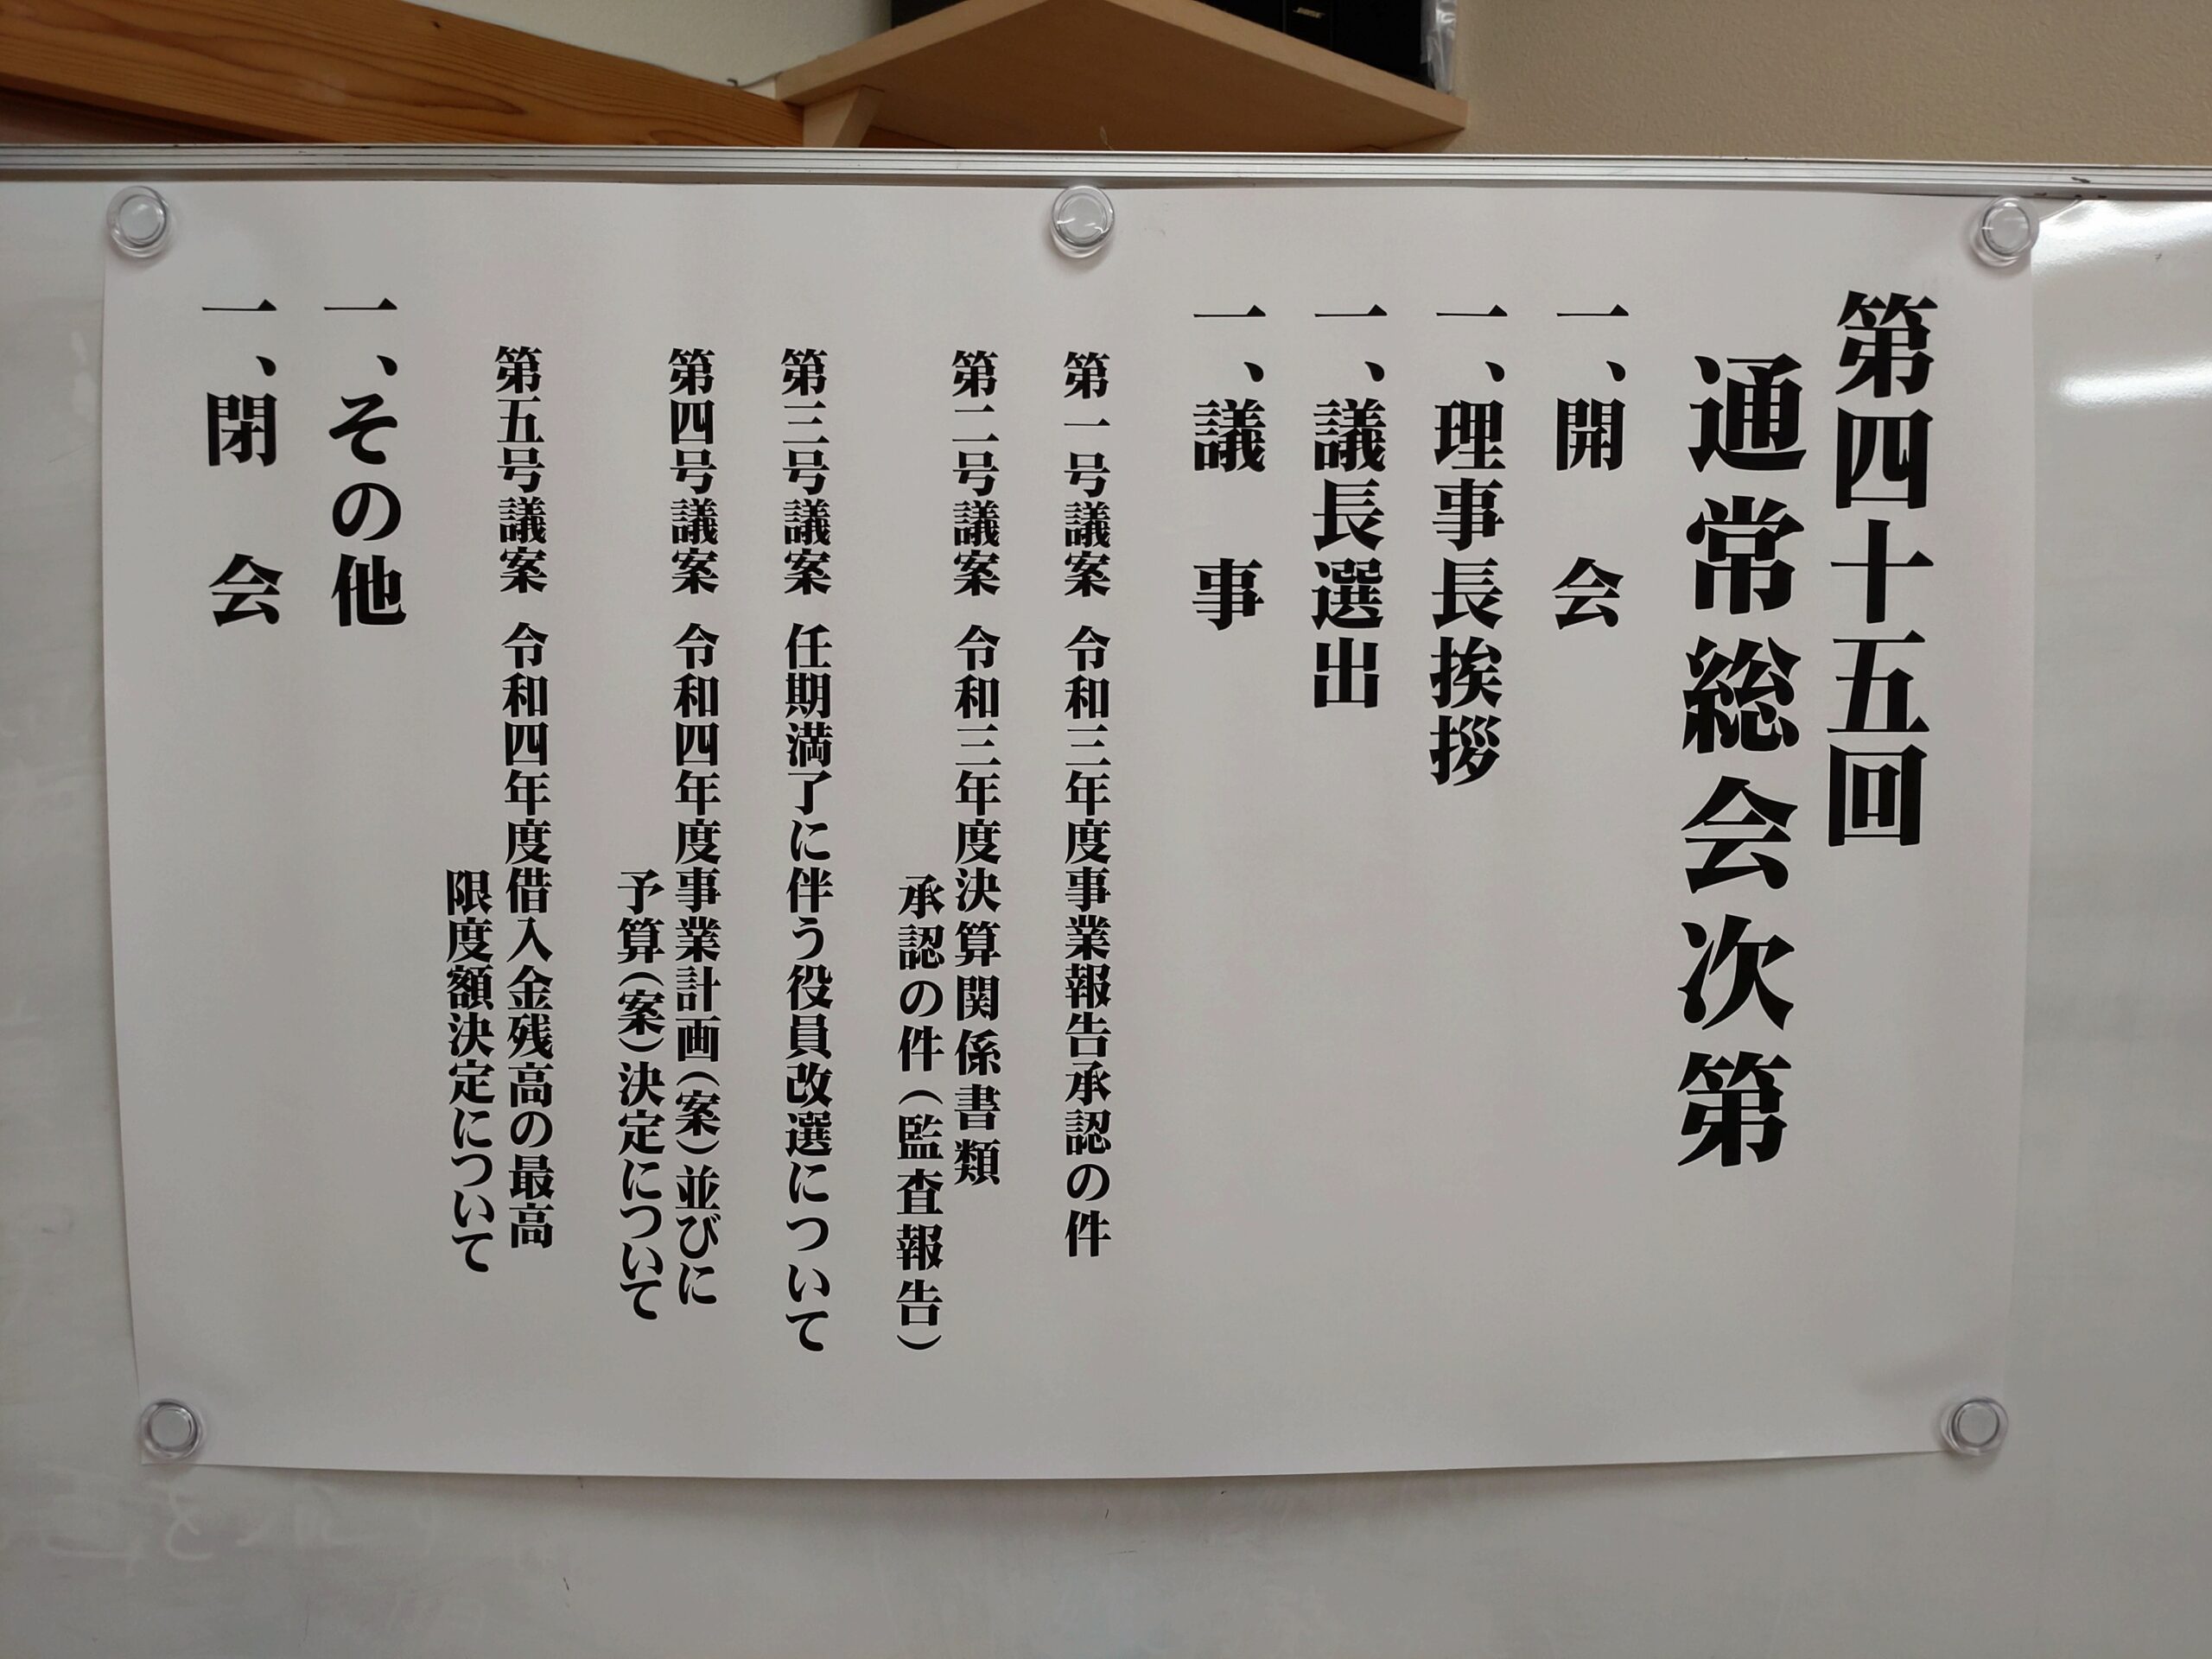 第四十五回
通常総会次第
一、開　会
一、理事長挨拶
一、議長選出
一、議　事
第一号議案　令和三年度事業報告承認の件
第二号議案　令和三年度決算関係書類
承認の件（監査報告）
第三号議案　任期満了に伴う役員改選について
第四号議案　令和四年度事業計画（案）並びに
予算（案）決定について
第五号議案　令和四年度借入金残高の最高
限度額決定について
一、その他
一、閉　会